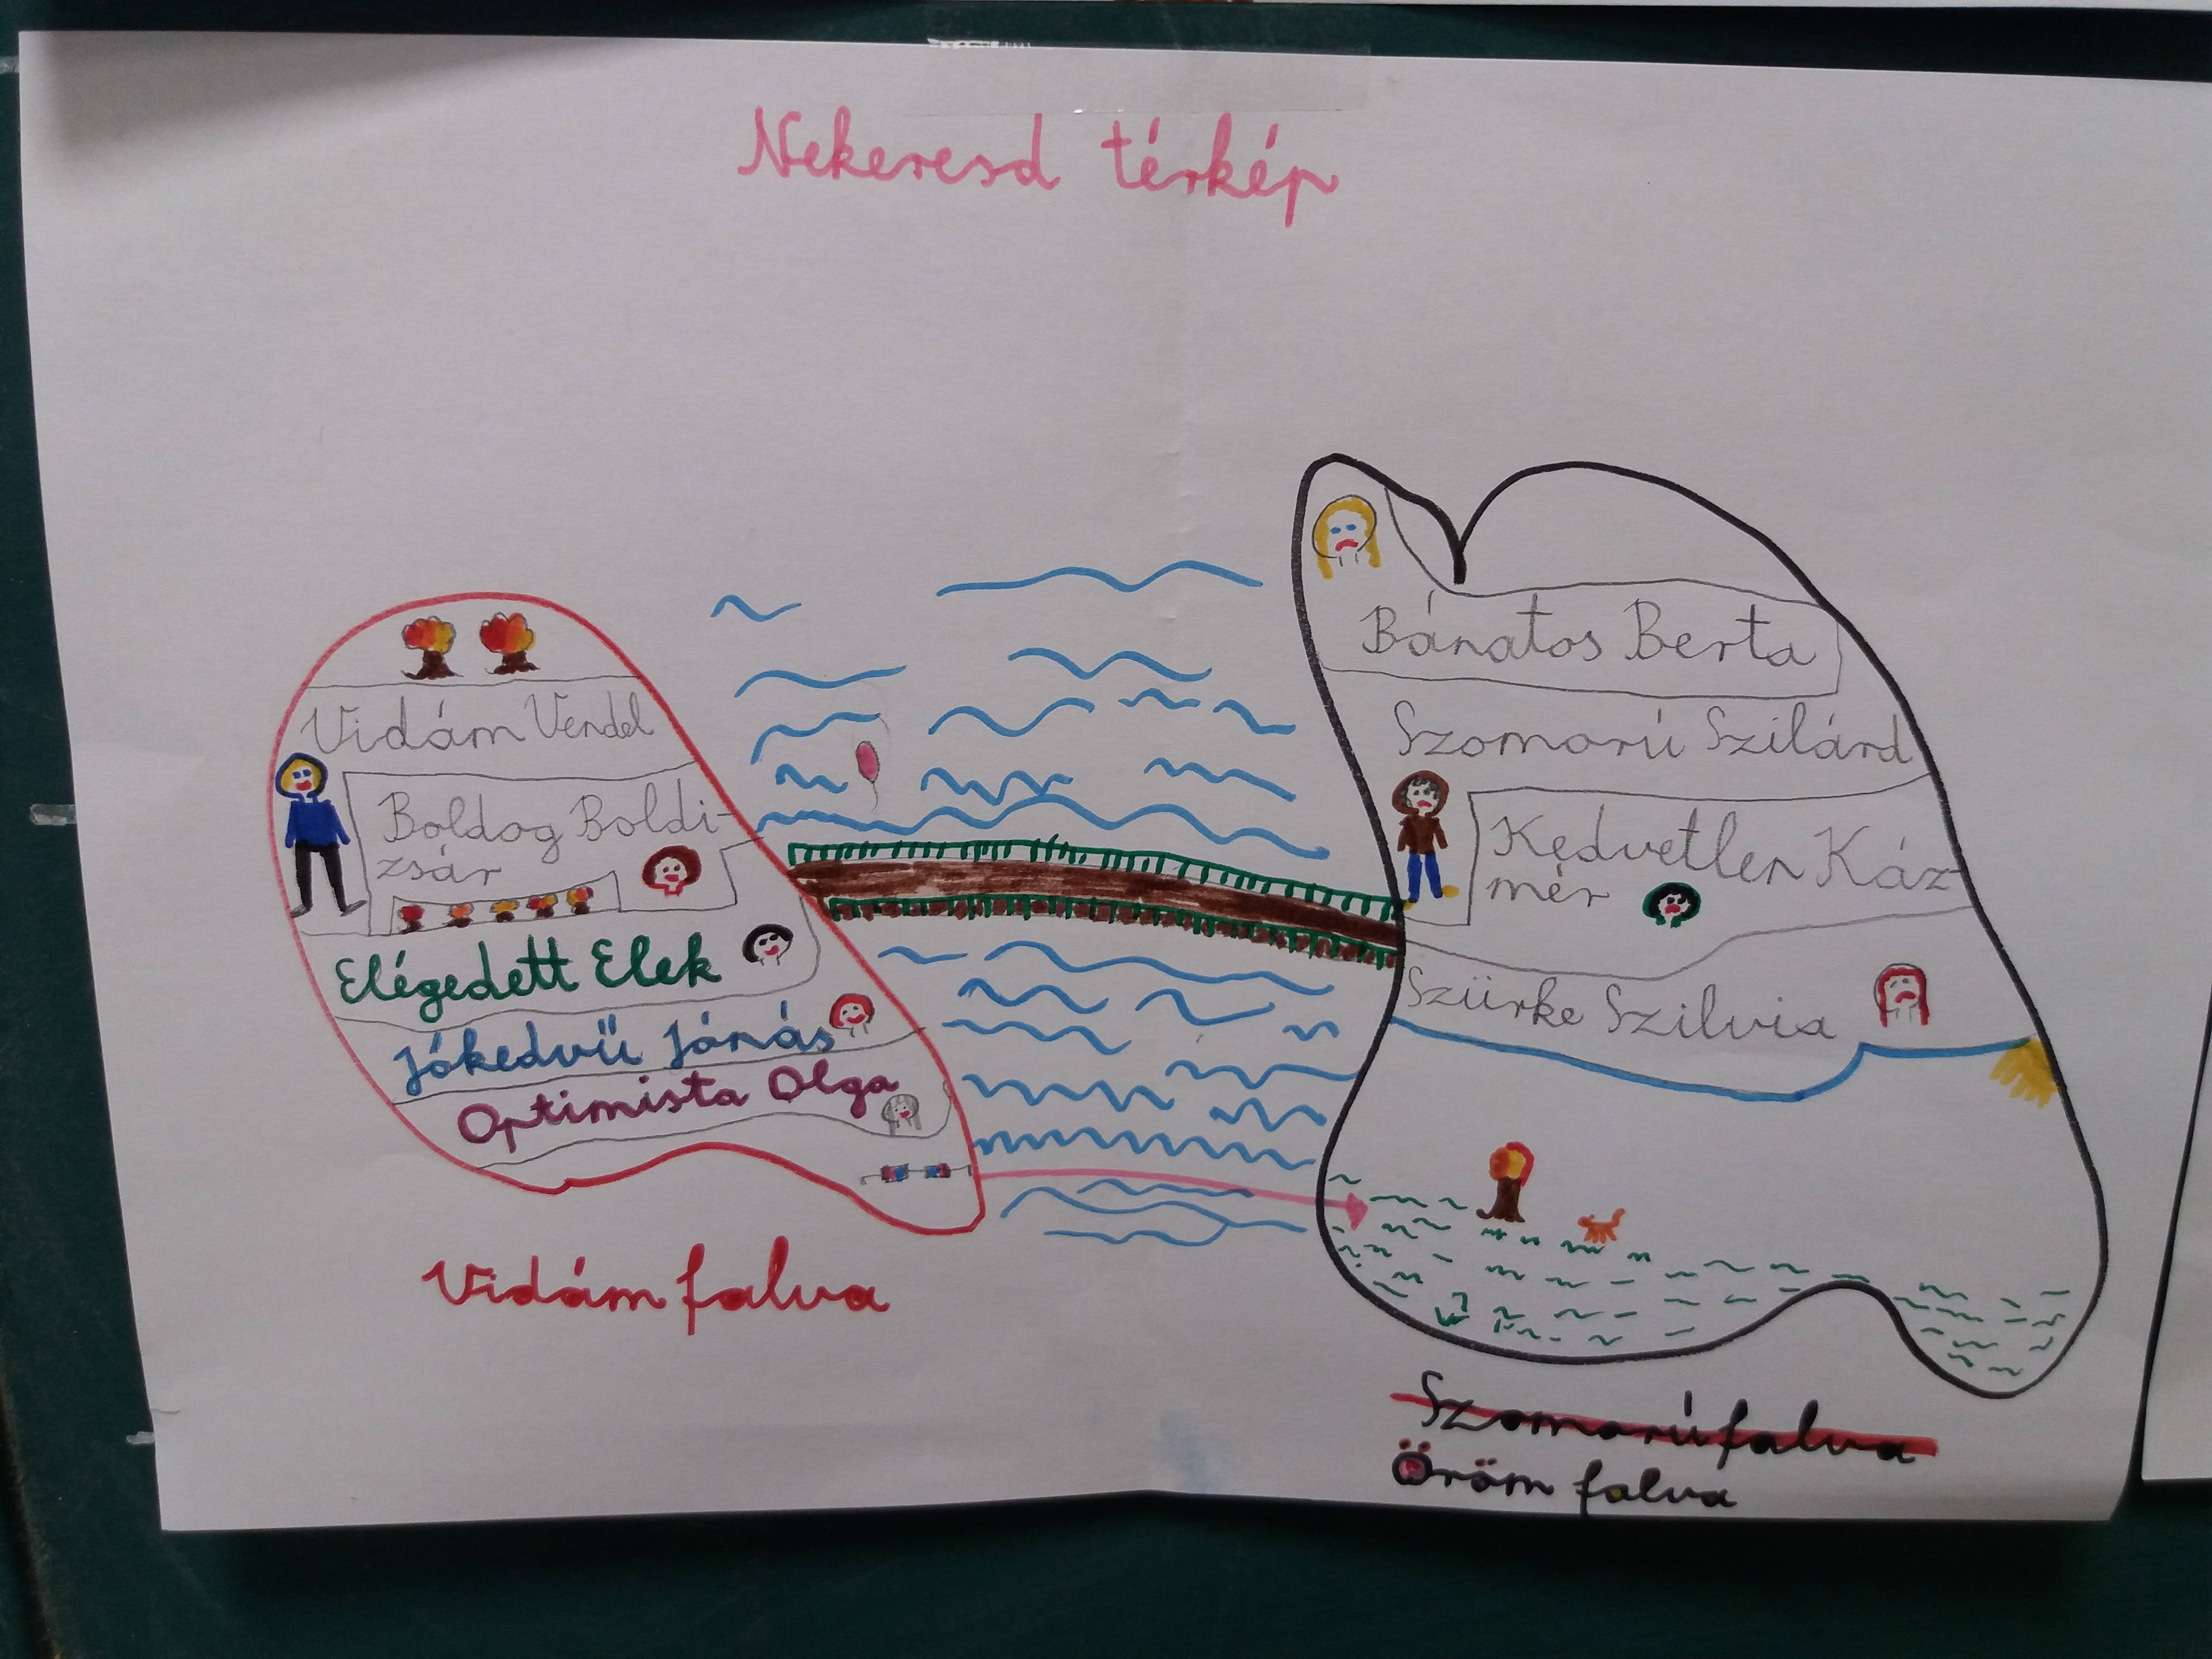 Nekeresd térkép
Vidám Vendel
Boldog Boldi-
zsár
Elégedett Elek
Jókedvű Jónás
Optimista Olga
Vidám falva
Bánatos Berta
Szomorú Szilárd
Kedvetlen Káz
mér
Szürke Szilvia
Szomorúfalva
Öröm falva